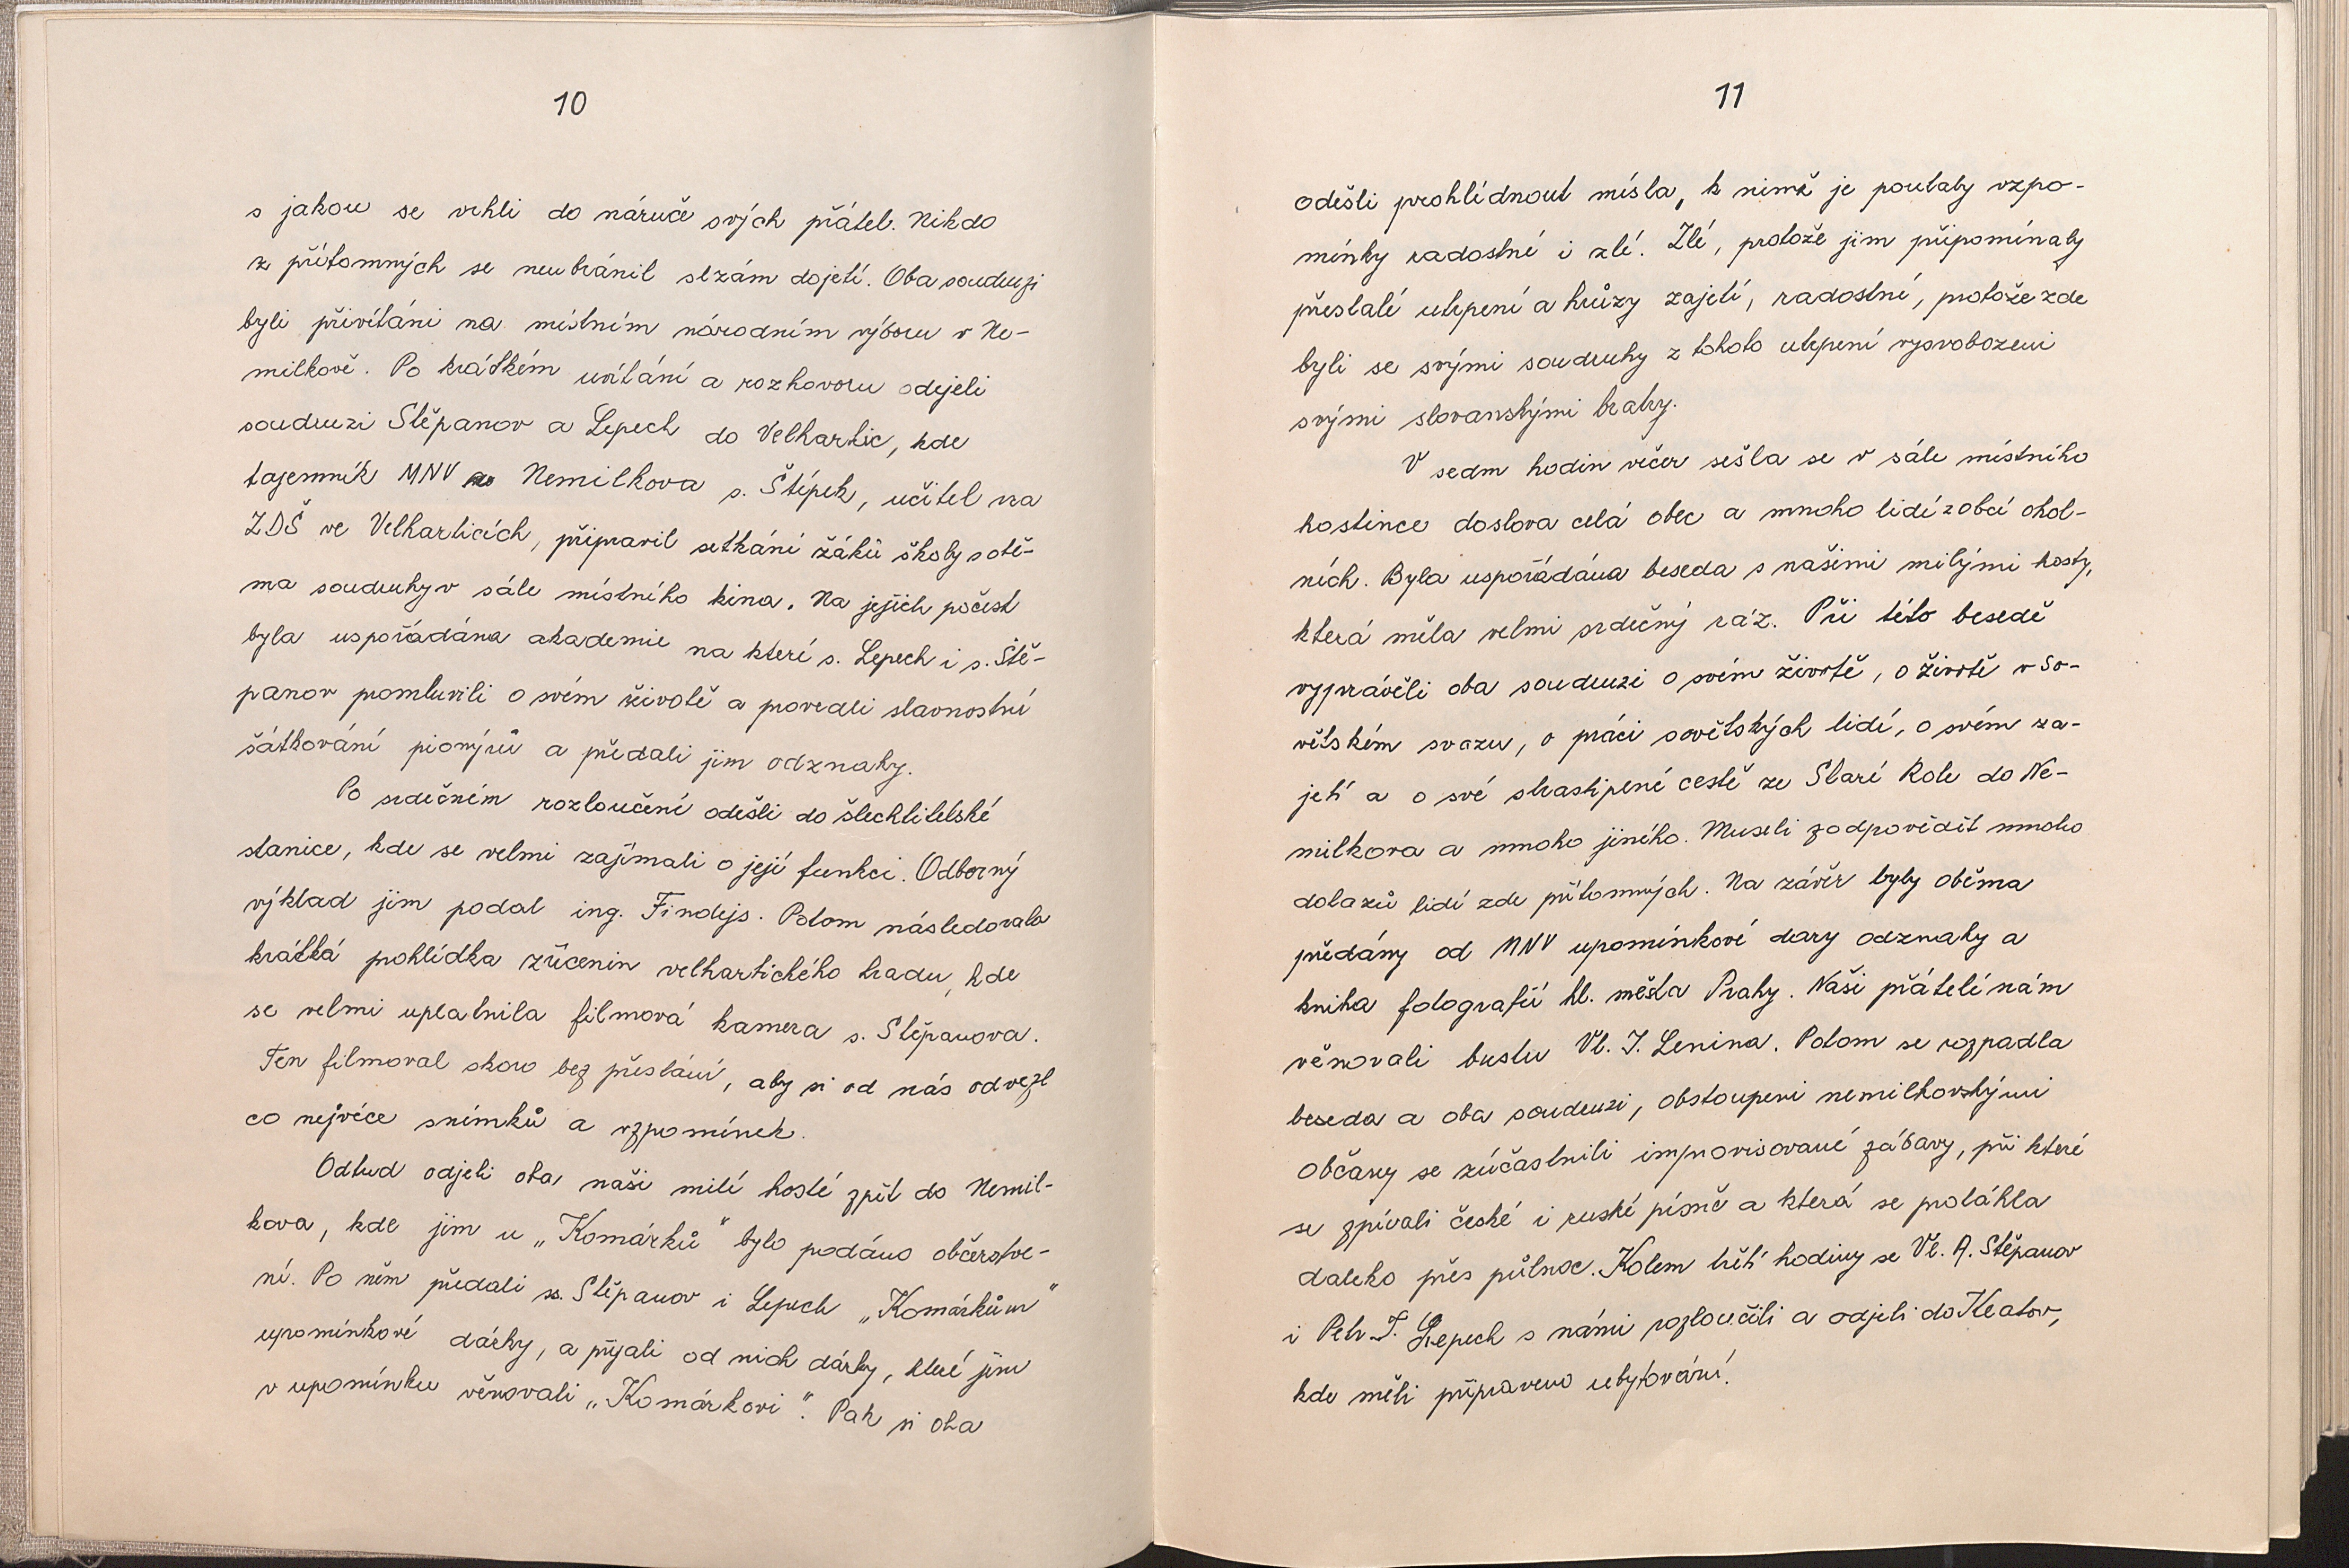 10
s jakou se vrhli do náruče svých přátel. Nikdo
z přítomných se neubránil slzám dojetí. Oba soudruzi
byli přivítáni na místním národním výboru v Ne-
milkově. Po krátkém uvítání a rozhovoru odejeli
soudruzi Stěpanov a Lepech do Velhartic, kde
tajemník MNV Nemilkova s. Štípek, učitel na
ZDŠ ve Velharticích, připravil setkání žáků školy s obě-
ma soudruhy v sále místního kina. Na jejich počest
byla uspořádána akademie na které s. Lepech i s. Stě-
panov promluvili o svém životě a provedli slavnostní
šátkování pionýrů a předali jim odznaky.
Po srdečném rozloučení odešli do šlechtitelské
stanice, kde se velmi zajímali o její funkci. Odborný
výklad jim podal ing. Findejs. Potom následovala
krátká prohlídka zřícenin velhartického hradu, kde
se velmi uplatnila filmová kamera s. Stěpanova.
Ten filmoval skoro bez přestání, aby si od nás odvezl
co nejvíce snímků a vzpomínek.
Odtud odjeli oba naši milí hosté zpět do Nemil-
kova, kde jim u „Komárků" bylo podáno občerstve-
ní. Po něm předali ss. Stěpanov i Lepech „Komárkům"
upomínkové dárky, a přijali od nich dárky, které jim
v upomínku věnovali „Komárkovi". Pak si oba
11
odešli prohlédnout místa, k nimž je poutaly vzpo-
mínky radostné i zlé. Zlé, protože jim připomínaly
přestálé utrpení a hrůzy zajetí, radostné, protože zde
byli se svými soudruhy z tohoto utrpení vysvobozeni
svými slovanskými bratry.
V sedm hodin večer sešla se v sále místního
hostince doslova celá obec a mnoho lidí z obcí okol-
ních. Byla uspořádána beseda s našimi milými hosty,
která měla velmi srdečný ráz. Při této besedě
vyprávěli oba soudruzi o svém životě, o životě v So-
větském svazu, o práci sovětských lidí, o svém za-
jetí a o své strastiplné cestě ze Staré Role do Ne-
milkova a mnoho jiného. Museli zodpovědět mnoho
dotazů lidí zde přítomných. Na závěr byly oběma
předány od MNV upomínkové dary odznaky a
kniha fotografií hl. města Prahy. Naši přátelé nám
věnovali bustu Vl. I. Lenina. Potom se rozpadla
beseda a oba soudruzi, obstoupeni nemilkovskými
občany se zúčastnili improvisované zábavy, při které
se zpívali české i ruské písně a která se protáhla
daleko přes půlnoc. Kolem třetí hodiny se Vl. A. Stěpanov
i Petr T. Lepech s námi rozloučili a odjeli do Klatov,
kde měli připraveno ubytování.